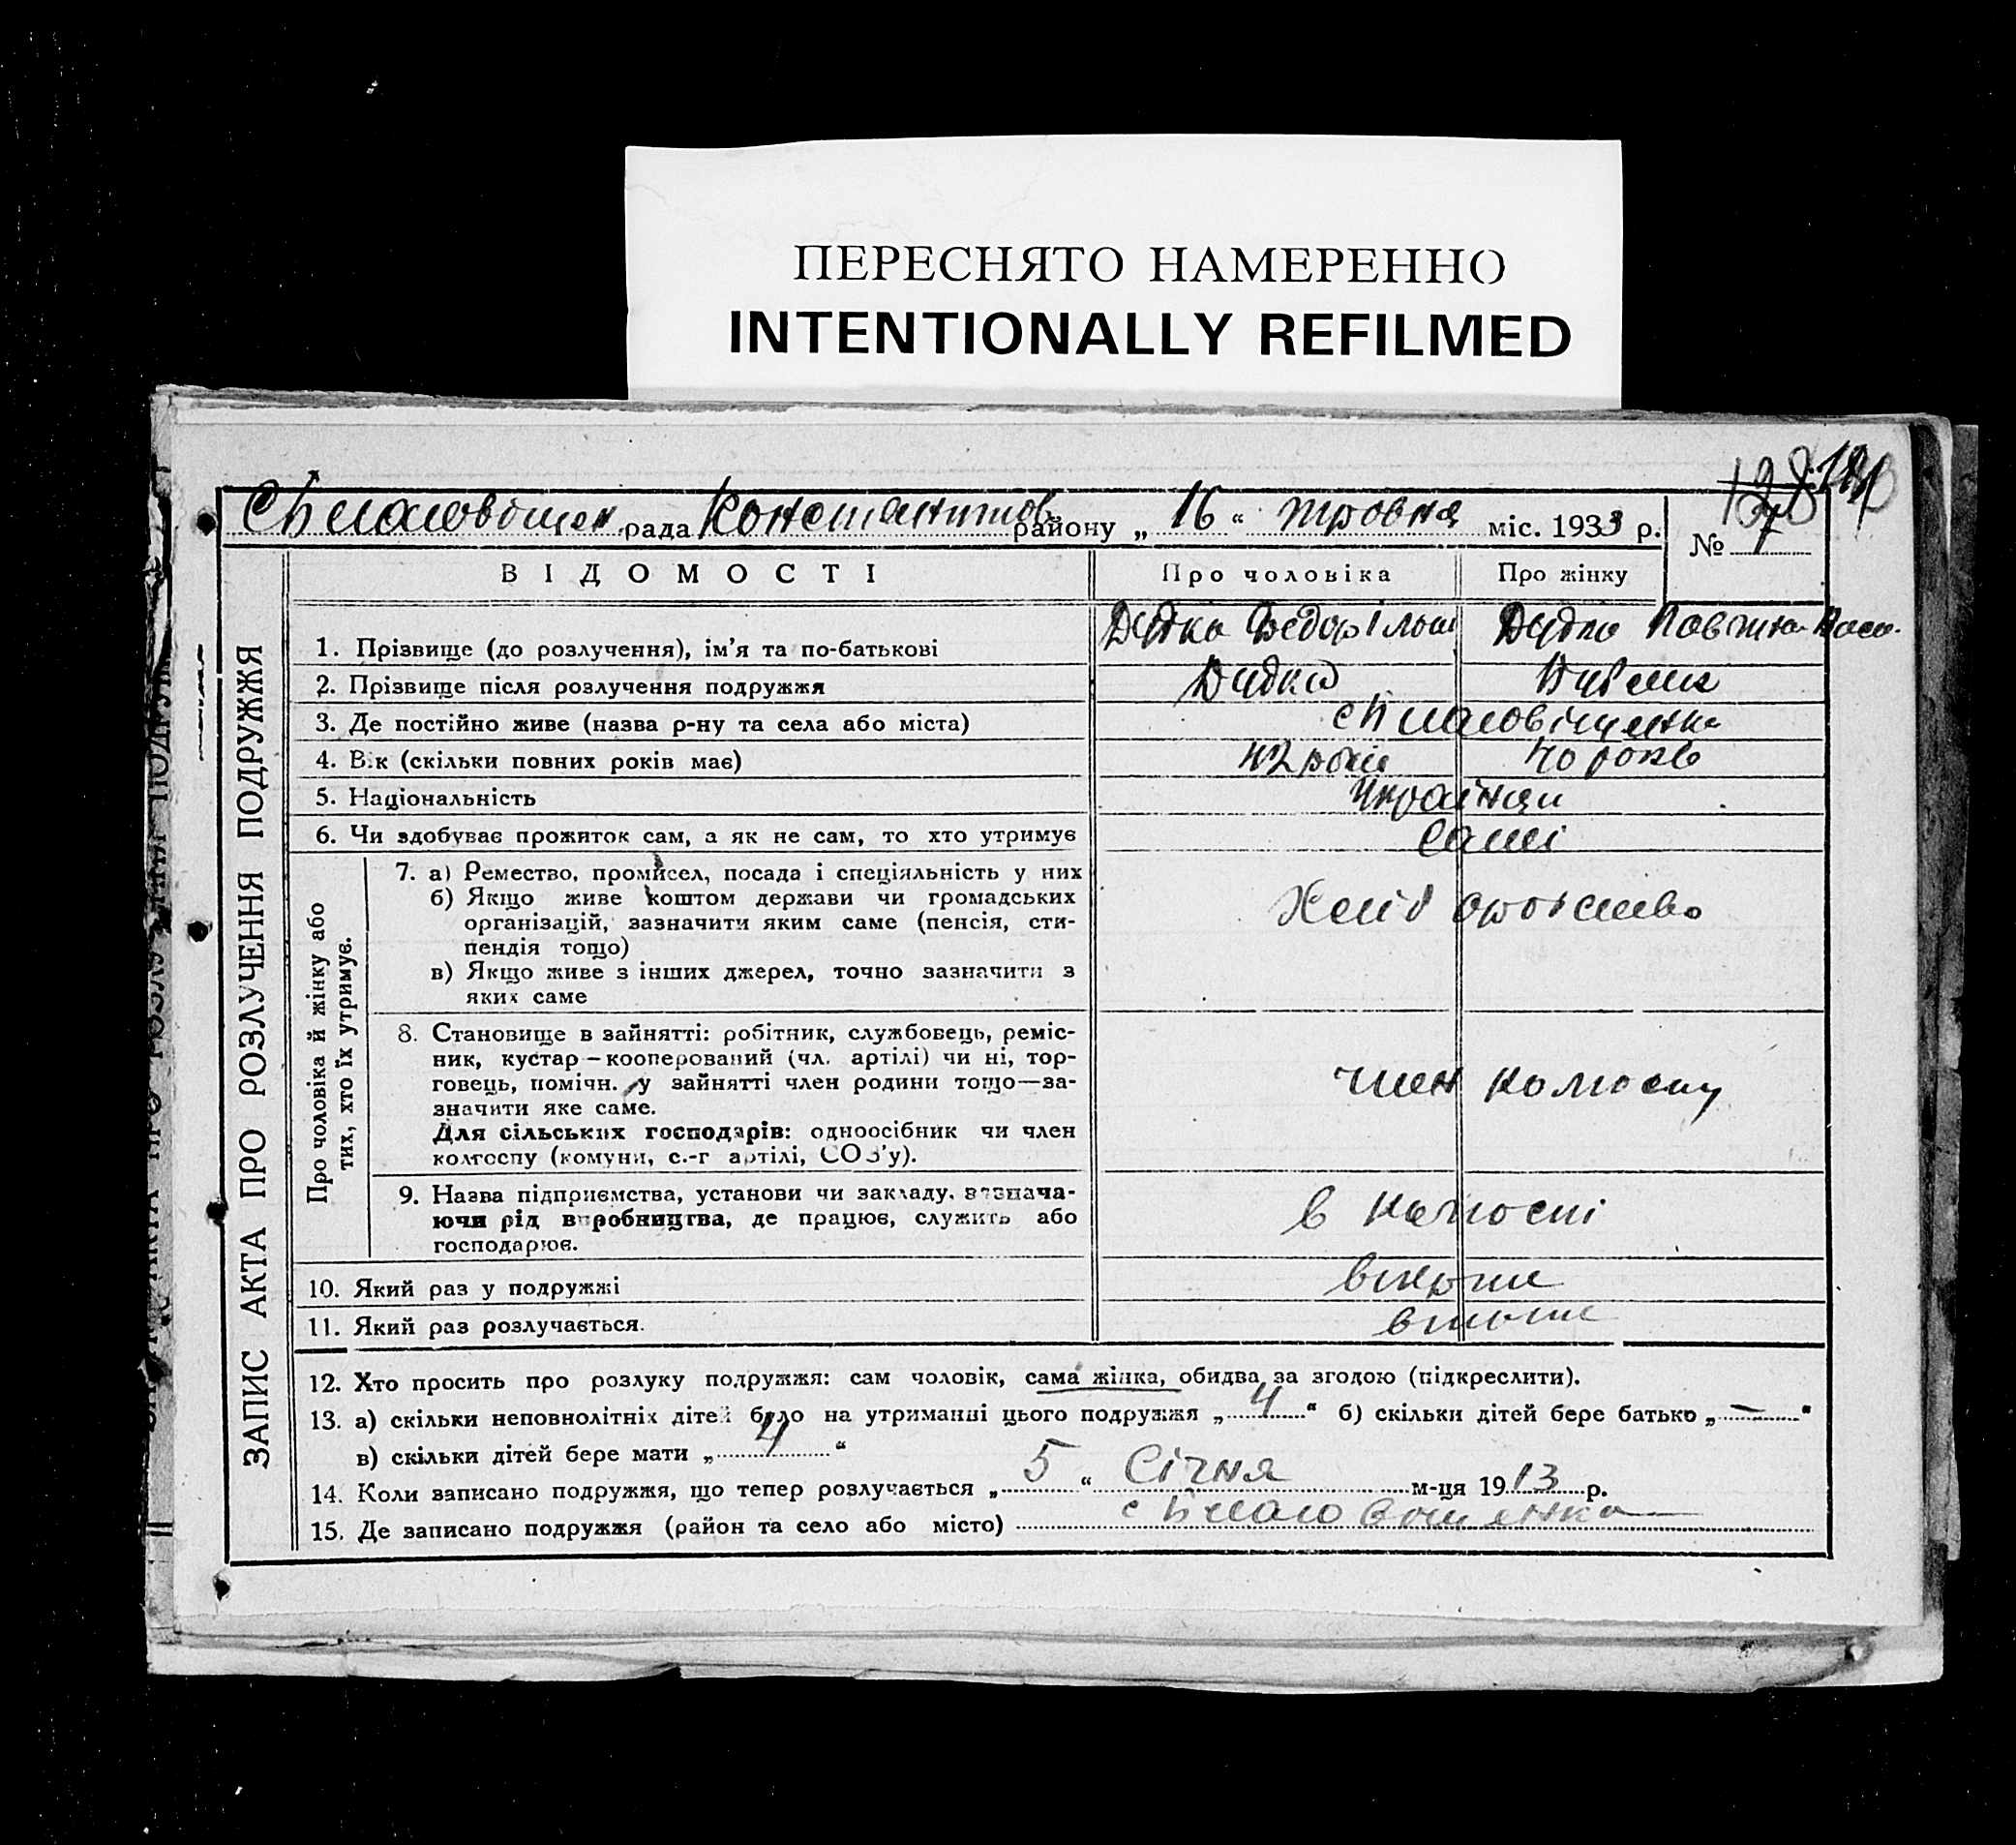 ПЕРЕСНЯТО НАМЕРЕННО
INTENTIONALLY REFILMED
рада Константинов району „ 16 “ травня міс. 1933 р.
№ 7
ВІДОМОСТІ Про чоловіка Про жінку
ЗАПИС АКТА ПРО РОЗЛУЧЕННЯ ПОДРУЖЖЯ
1. Прізвище (до розлучення), ім'я та по-батькові Дудка Федор Дудко
2. Прізвище після розлучення подружжя Дудко
3. Де постійно живе (назва р-ну та села або міста)
4. Вік (скільки повних років має) 42 роки 40 років
5. Національність Українци
6. Чи здобуває прожиток сам, а як не сам, то хто утримує Самі
Про чоловіка й жінку або
тих, хто їх утримує.
7. а) Ремество, промисел, посада і спеціяльність у них
б) Якщо живе коштом держави чи громадських
організацій, зазначити яким саме (пенсія, сти-
пендія тощо)
в) Якщо живе з інших джерел, точно зазначити з
яких саме
Хліборобство
8. Становище в зайнятті: робітник, службовець, реміс-
ник, кустар — кооперований (чл. артілі) чи ні, тор-
говець, помічн. у зайнятті член родини тощо—за-
значити яке саме.
Для сільських господарів: одноосібник чи член
колгоспу (комуни, с.-г артілі, СОЗ'у).
член колгоспу
9. Назва підприємства, установи чи закладу, зазнача-
ючи рід виробництва, де працює, служить або
господарює.
в колгоспі
10. Який раз у подружжі вперше
11. Який раз розлучається.
12. Хто просить про розлуку подружжя: сам чоловік, сама жінка, обидва за згодою (підкреслити).
13. а) скільки неповнолітніх дітей було на утриманні цього подружжя „ 4 “ б) скільки дітей бере батько „ — “
в) скільки дітей бере мати „ 4 “
14. Коли записано подружжя, що тепер розлучається „ 5 “ Січня м-ця 1913 р.
15. Де записано подружжя (район та село або місто)